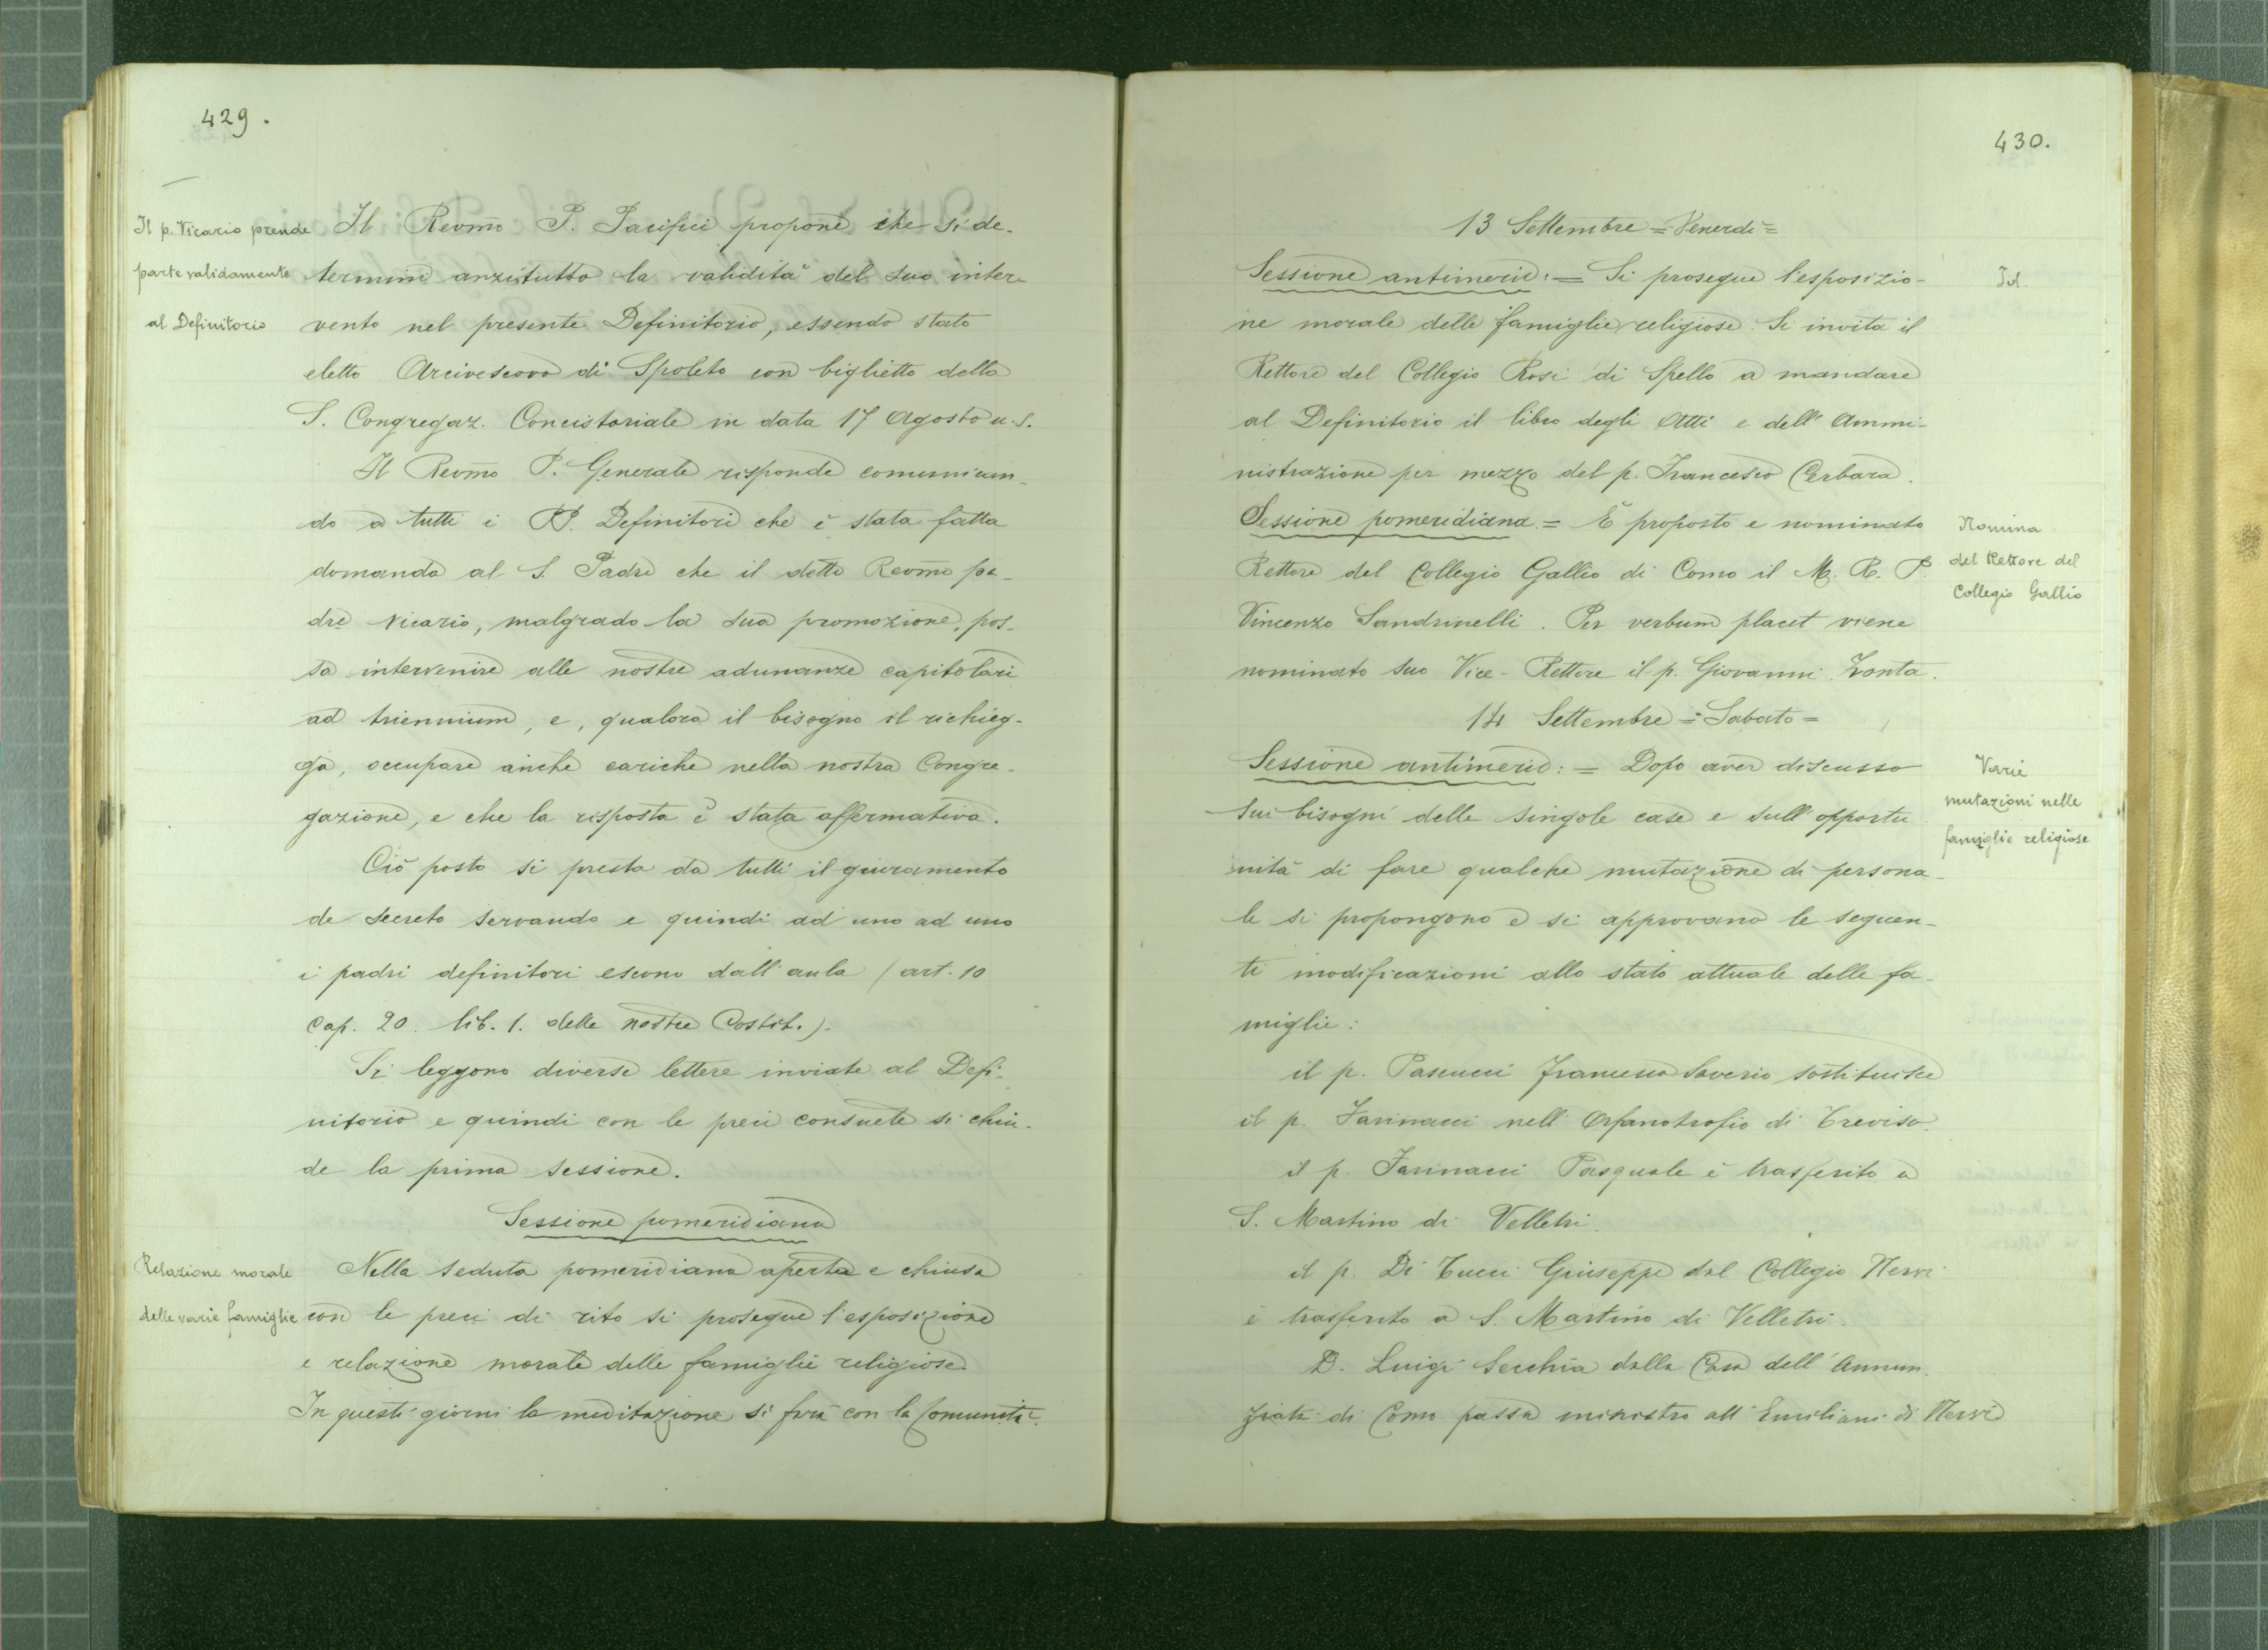 429.
Il p. Vicario prende
parte validamente
al Definitorio
Il Revm̃o P. Pacifici propone che si de-
termini anzitutto la validità del suo inter-
vento nel presente Definitorio, essendo stato
eletto Arcivescovo di Spoleto con biglietto della
S. Congregaz. Concistoriale in data 17 Agosto u.s.
Il Revm̃o P. Generale risponde comunican-
do a tutti i PP. Definitori che è stata fatta
domanda al S. Padre che il detto Revm̃o pa-
dre Vicario, malgrado la sua promozione, pos-
sa intervenire alle nostre adunanze capitolari
ad triennium, e, qualora il bisogno il richieg-
ga, occupare anche cariche nella nostra Congre-
gazione, e che la risposta è stata affermativa.
Ciò posto si presta da tutti il giuramento
de secreto servando e quindi ad uno ad uno
i padri definitori escono dall'aula (art. 10
cap. 20. lib. 1. delle nostre Costit.).
Si leggono diverse lettere inviate al Defi-
nitorio e quindi con le preci consuete si chiu-
de la prima sessione.
Sessione pomeridiana
Relazione morale
delle varie famiglie
Nella seduta pomeridiana aperta e chiusa
con le preci di rito si prosegue l'esposizione
e relazione morale delle famiglie religiose.
In questi giorni la meditazione si farà con la Comunità.
430.
13 Settembre = Venerdì =
Sessione antimerid: = Si prosegue l'esposizio-
Id.
ne morale delle famiglie religiose. Si invita il
Rettore del Collegio Rosi di Spello a mandare
al Definitorio il libro degli Atti e dell'Ammi-
nistrazione per mezzo del p. Francesco Cerbara.
Sessione pomeridiana. = È proposto e nominato
Nomina
del Rettore del
Collegio Gallio
Rettore del Collegio Gallio di Como il M. R. P.
Vincenzo Sandrinelli. Per verbum placet viene
nominato suo Vice-Rettore il p. Giovanni Zonta.
14 Settembre = Sabato =
Sessione antimerid: = Dopo aver discusso
Varie
mutazioni nelle
famiglie religiose
sui bisogni delle singole case e sull'opportu
nità di fare qualche mutazione di persona-
le si propongono e si approvano le seguen-
ti modificazioni allo stato attuale delle fa-
miglie:
il p. Pascucci Francesco Saverio sostituisce
il p. Farinacci nell'Orfanotrofio di Treviso.
il p. Farinacci Pasquale è trasferito a
S. Martino di Velletri.
il p. Di Tucci Giuseppe dal Collegio Nervi
è trasferito a S. Martino di Velletri.
D. Luigi Secchia dalla Casa dell'Annun-
ziata di Como passa ministro all'Emiliani di Nervi